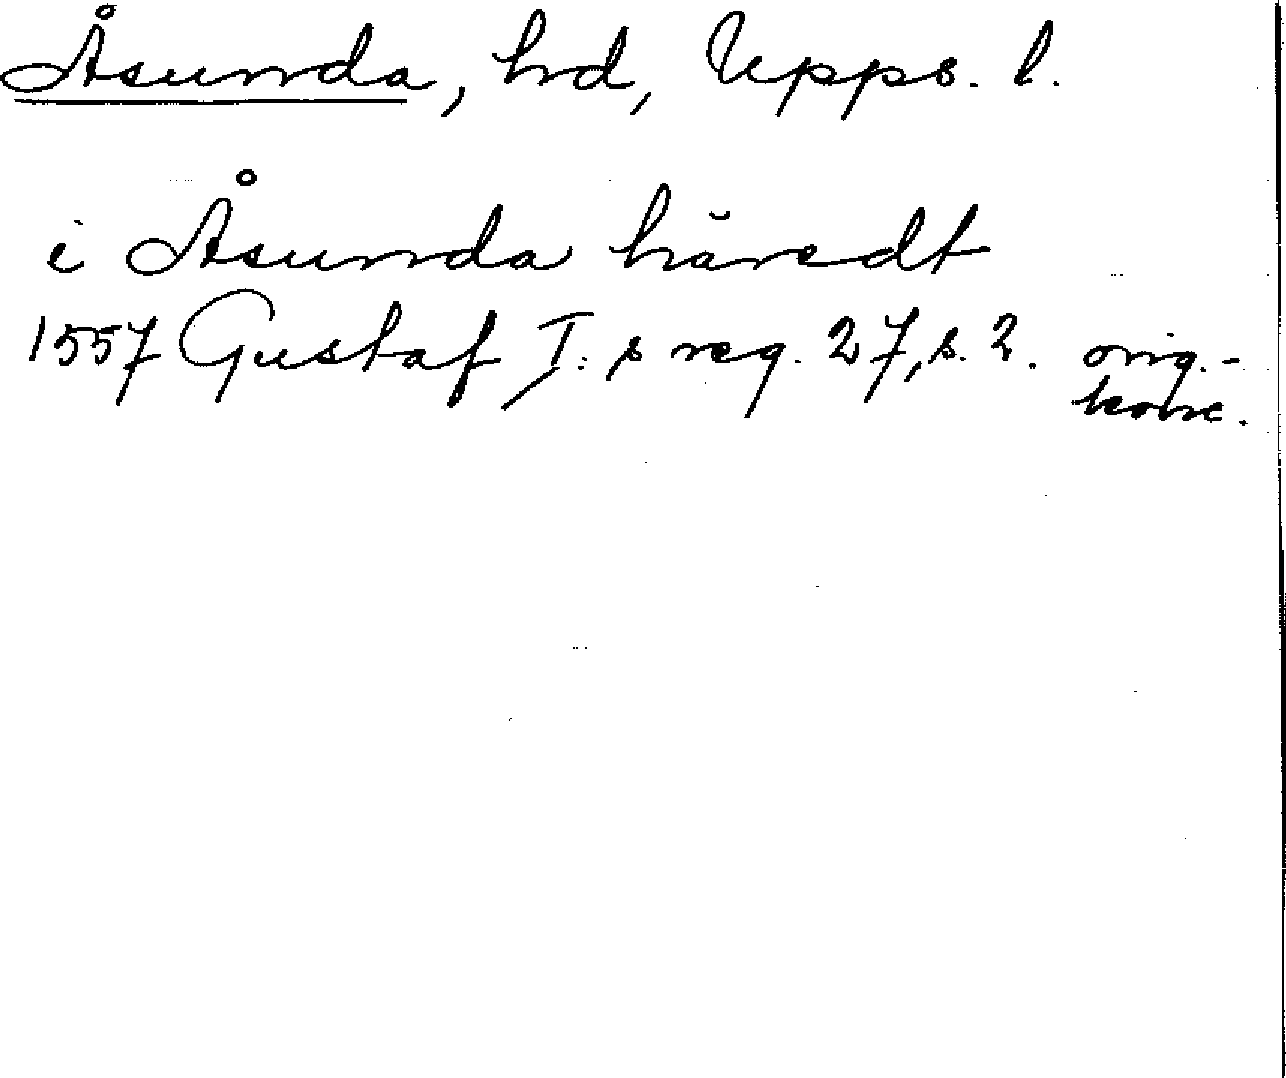 Åsunda, hd, Upps. l.
i Åsunda häredt
1557 Gustaf I:s reg. 27, s. 2. orig.-
konc.